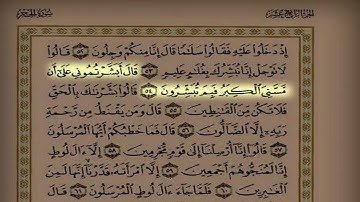 الجزء الرابع عشر
سورة الحجر
إِذْ دَخَلُوا۟ عَلَيْهِ فَقَالُوا۟ سَلَٰمًا قَالَ إِنَّا مِنكُمْ وَجِلُونَ ٥٢ قَالُوا۟
لَا تَوْجَلْ إِنَّا نُبَشِّرُكَ بِغُلَٰمٍ عَلِيمٍ ٥٣ قَالَ أَبَشَّرْتُمُونِى عَلَىٰٓ أَن
مَّسَّنِىَ ٱلْكِبَرُ فَبِمَ تُبَشِّرُونَ ٥٤ قَالُوا۟ بَشَّرْنَٰكَ بِٱلْحَقِّ
فَلَا تَكُن مِّنَ ٱلْقَٰنِطِينَ ٥٥ قَالَ وَمَن يَقْنَطُ مِن رَّحْمَةِ
رَبِّهِۦٓ إِلَّا ٱلضَّآلُّونَ ٥٦ قَالَ فَمَا خَطْبُكُمْ أَيُّهَا ٱلْمُرْسَلُونَ
٥٧ قَالُوٓا۟ إِنَّآ أُرْسِلْنَآ إِلَىٰ قَوْمٍ مُّجْرِمِينَ ٥٨ إِلَّآ ءَالَ لُوطٍ
إِنَّا لَمُنَجُّوهُمْ أَجْمَعِينَ ٥٩ إِلَّا ٱمْرَأَتَهُۥ قَدَّرْنَآ إِنَّهَا لَمِنَ
ٱلْغَٰبِرِينَ ٦٠ فَلَمَّا جَآءَ ءَالَ لُوطٍ ٱلْمُرْسَلُونَ ٦١ قَالَ